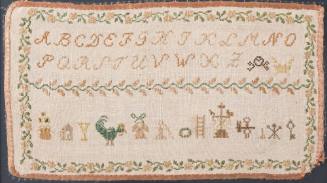 A B C D E F G H I K L M N O
P Q R S T U V W X Z